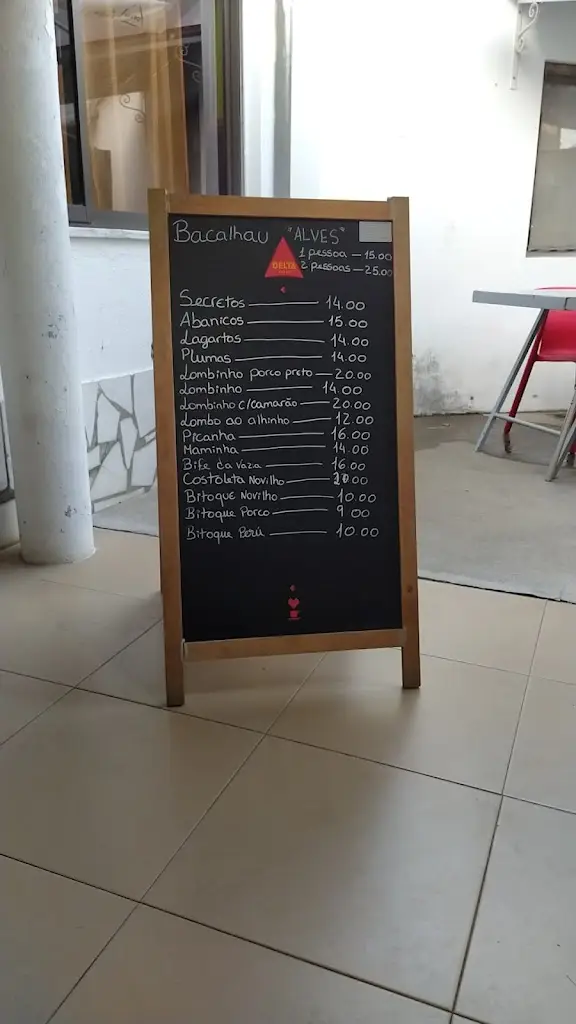 Bacalhau "ALVES"
1 pessoa — 15.00
DELTA
2 pessoas — 25.00
Secretos — 14.00
Abanicos — 15.00
Lagartos — 14.00
Plumas — 14.00
Lombinho porco preto — 20.00
Lombinho — 14.00
Lombinho c/camarão — 20.00
Lombo ao alhinho — 12.00
Picanha — 16.00
Maminha — 14.00
Bife da Vaza — 16.00
Costoleta Novilho — 20.00
Bitoque Novilho — 10.00
Bitoque Porco — 9.00
Bitoque Perú — 10.00